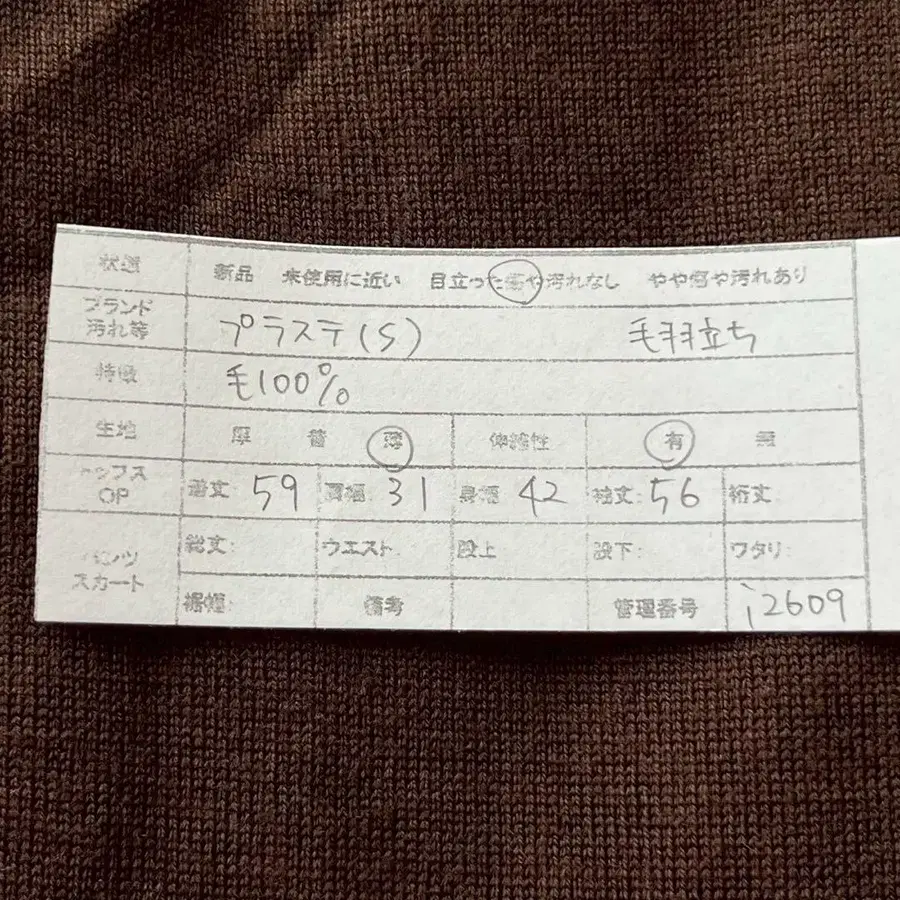 状態 新品 未使用に近い 目立った傷や汚れなし やや傷や汚れあり
ブランド
汚れ等 プラステ(S) 毛羽立ち
特徴 毛100%
生地 厚 普 薄 伸縮性 有 無
トップス
OP 着丈: 59 肩幅: 31 身幅: 42 袖丈: 56 裄丈:
パンツ
スカート 総丈: ウエスト: 股上 股下: ワタリ:
裾幅: 備考 管理番号 i2609